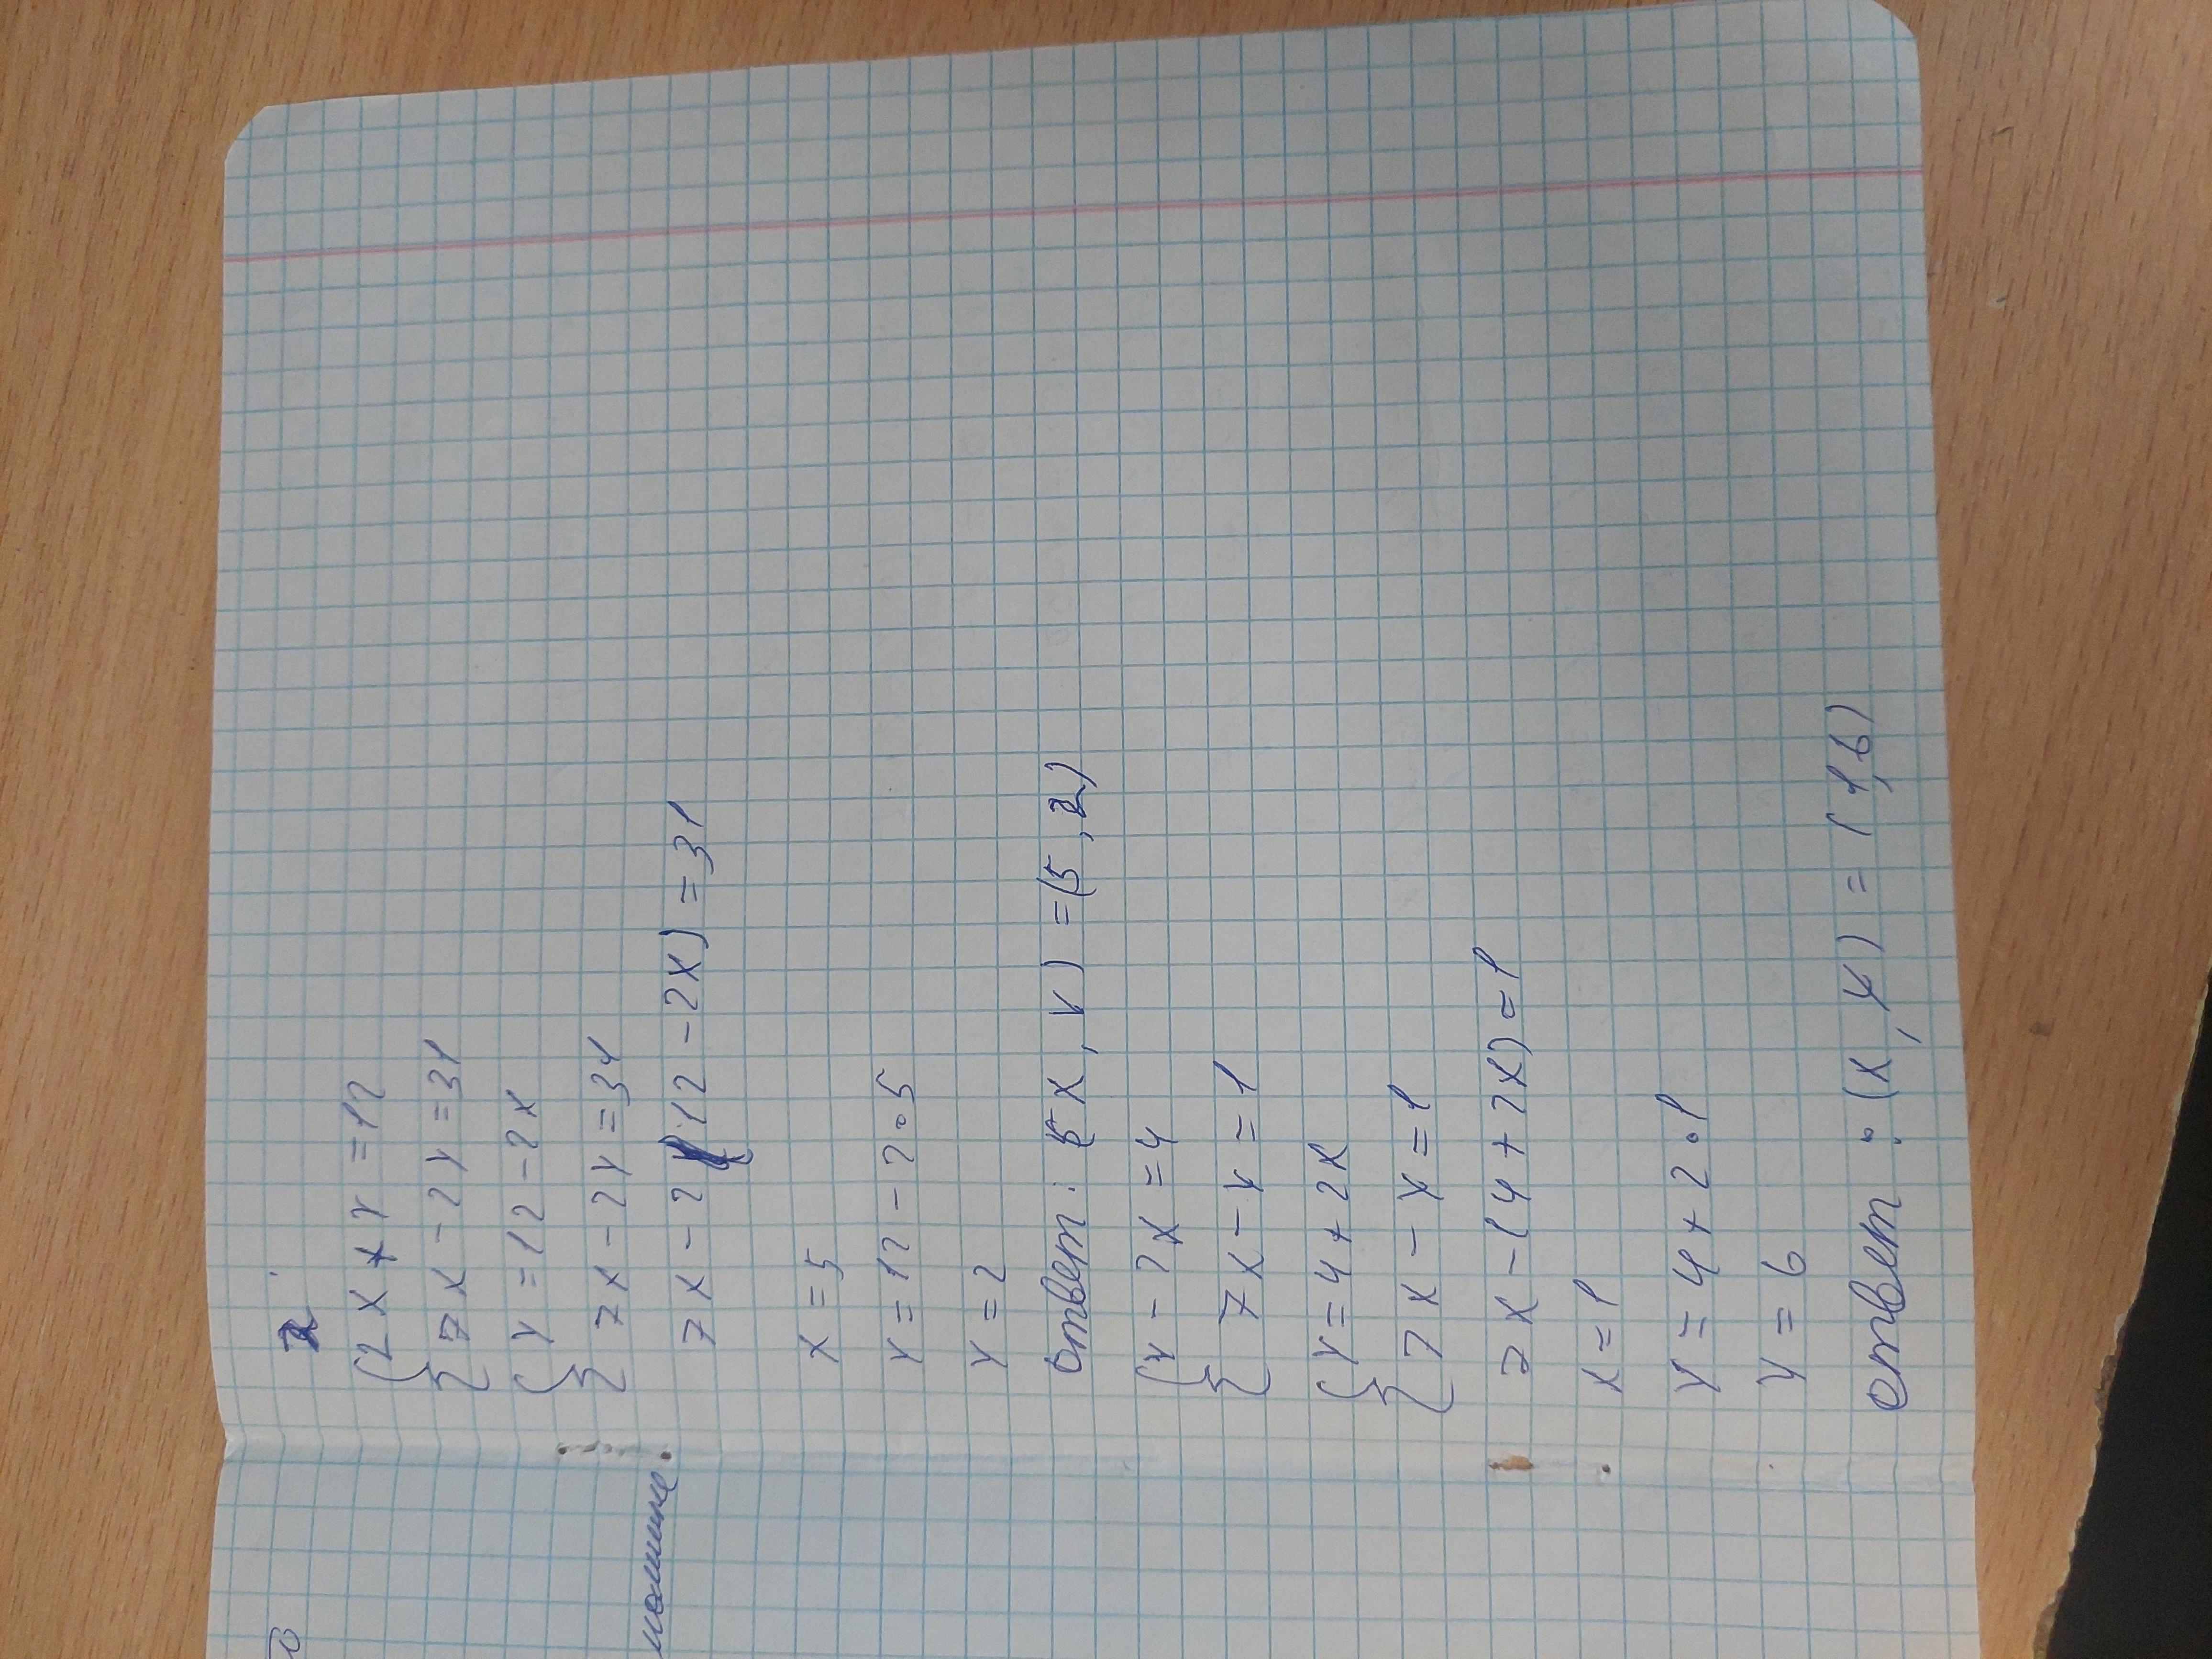 2
{2x+y=12
{7x-2y=31
{y=12-2x
{7x-2y=31
7x-2(12-2x)=31
x=5
y=12-2∘5
y=2
ответ: (x,y)=(5,2)
{y-2x=4
{7x-y=1
{y=4+2x
{7x-y=1
7x-(4+2x)=1
x=1
y=4+2∘1
y=6
ответ: (x,y)=(1,6)